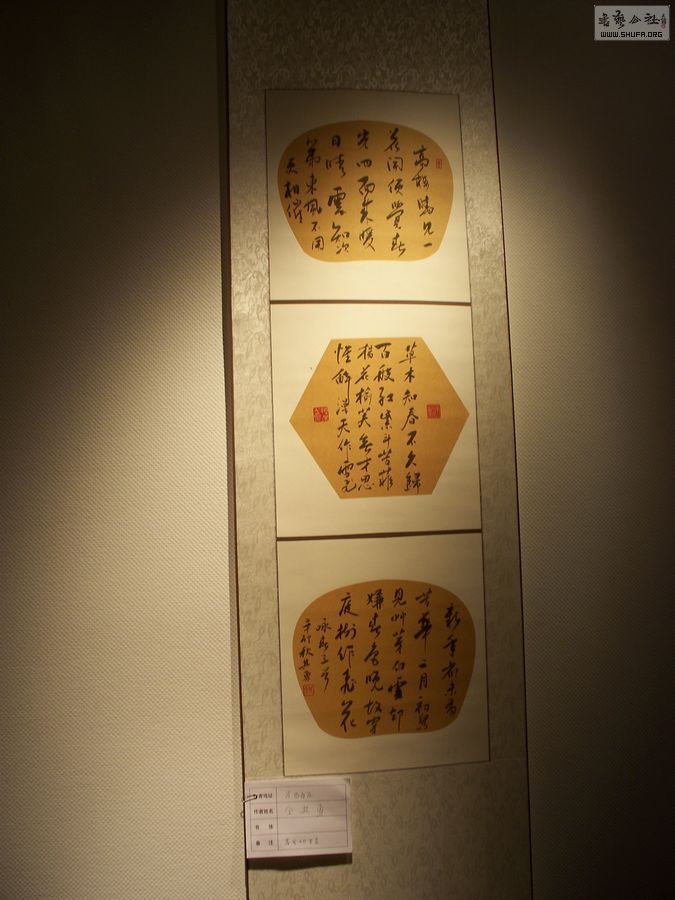 書藝公社
WWW.SHUFA.ORG
高楼晓见一
花開便覺春
光四面来暖
日晴雲知次
第東風不用
更相催
草木知春不久歸
百般紅紫斗芳菲
楊花榆荚無才思
惟解漫天作雪飛
新年都未有
芳華二月初驚
見艸芽白雪却
嫌春色晚故穿
庭樹作飛花
咏春三首
辛卯秋其勇
作者姓名
其勇
书 体
备 注